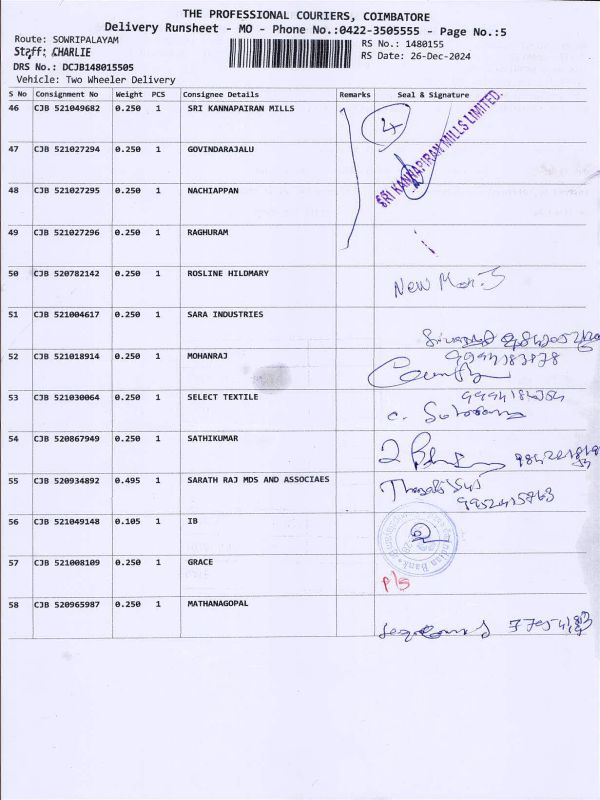 THE PROFESSIONAL COURIERS, COIMBATORE
Delivery Runsheet - MO - Phone No.:0422-3505555 - Page No.:5
Route: SOWRIPALAYAM
Staff: CHARLIE
DRS No.: DCJB148015505
Vehicle: Two Wheeler Delivery
RS No.: 1480155
RS Date: 26-Dec-2024
S No Consignment No Weight PCS Consignee Details Remarks Seal & Signature
46 CJB 521049682 0.250 1 SRI KANNAPAIRAN MILLS 4
SRI KANNAPIRAN MILLS LIMITED.
47 CJB 521027294 0.250 1 GOVINDARAJALU
48 CJB 521027295 0.250 1 NACHIAPPAN
49 CJB 521027296 0.250 1 RAGHURAM
50 CJB 520782142 0.250 1 ROSLINE HILDMARY
51 CJB 521004617 0.250 1 SARA INDUSTRIES
52 CJB 521018914 0.250 1 MOHANRAJ
53 CJB 521030064 0.250 1 SELECT TEXTILE
54 CJB 520867949 0.250 1 SATHIKUMAR
55 CJB 520934892 0.495 1 SARATH RAJ MDS AND ASSOCIAES
56 CJB 521049148 0.105 1 IB
Indian Bank
57 CJB 521008109 0.250 1 GRACE
P/S
58 CJB 520965987 0.250 1 MATHANAGOPAL